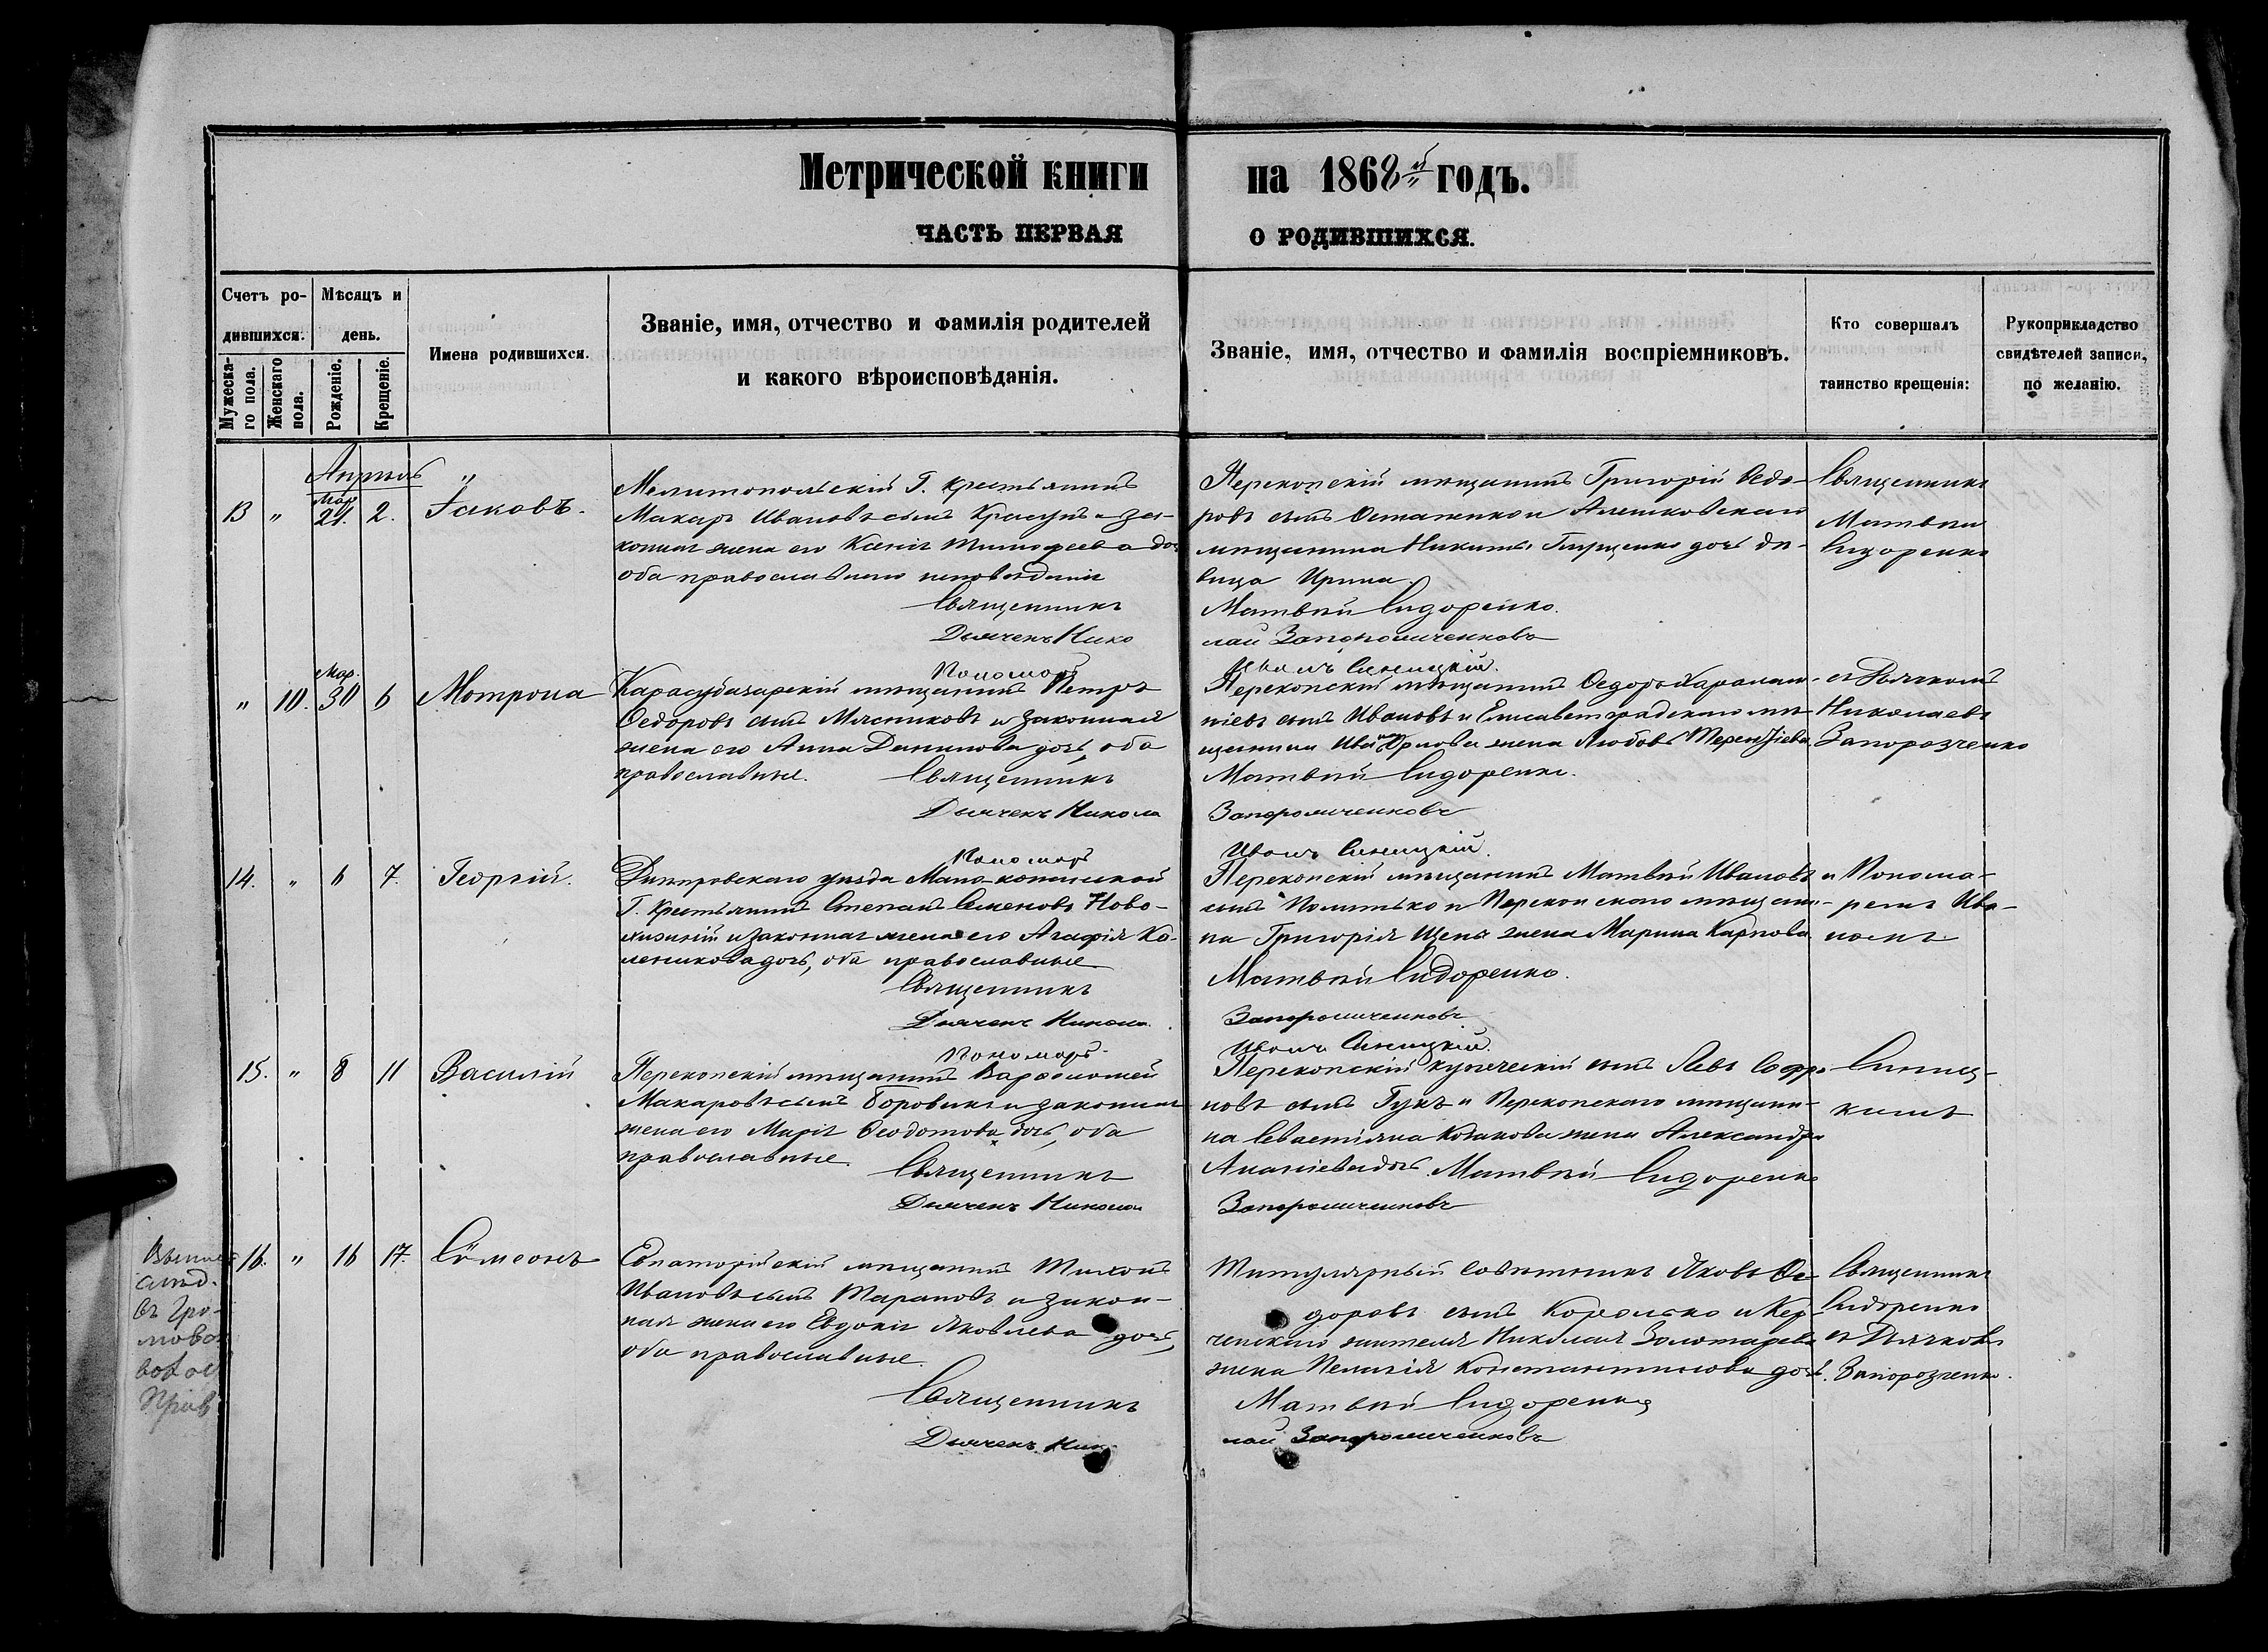 Метрической книги на 1868й годъ.
ЧАСТЬ ПЕРВАЯ О РОДИВШИХСЯ.
Счетъ ро-
дившихся.
Мужеска-
го пола.
Женскаго
пола.
Мѣсяцъ и
день.
Рожденіе.
Крещеніе.
Имена родившихся.
Званіе, имя, отчество и фамилія родителей
и какого вѣроисповѣданія.
Званіе, имя, отчество и фамилія воспріемниковъ.
Кто совершалъ
таинство крещенія:
Рукоприкладство
свидѣтелей записи,
по желанію.
Апрѣль „
13 „ Мар 21. 2. Іаковъ.
Мелитопольскій Г. крестьянинъ
Макаръ Ивановъ сынъ и за-
конная жена его Ксенія Тимофеева доч
оба православнаго исповѣданія
Священникъ
Дьячекъ Нико
Пономарь
Перекопскій мѣщанинъ Григорій Ѳедо-
ровъ сынъ Остапенко и Алешковскаго
мѣщанина Никиты дочь дѣ-
вица Ирина.
Матвѣй Сидоренко.
лай Запорожченковъ
Иванъ Синицкій.
Священникъ
Матвѣй
Сидоренко
„ 10. Мар. 30 6 Мотрона
Карасубазарскій мѣщанинъ Петръ
Ѳедоровъ сынъ Мясниковъ и законная
жена его Анна Данилова дочь, оба
православные. Священникъ
Дьячекъ Никола
Пономарь
Перекопскій мѣщанинъ Ѳедоръ Харалам-
піевъ сынъ Ивановъ и Елисаветградскаго мѣ-
щанина Ивана Орлова жена Любовь Терентіева
Матвѣй Сидоренко.
Запорожченковъ
Иванъ Синицкій.
съ Дьячкомъ
Николаевъ
Запорозченко
14. „ 6 7. Георгій.
Днѣпровскаго уѣзда Мало-копаньской
Г. Крестьянинъ Стефанъ Семеновъ Ново-
и законная жена его Агафія Ка-
леникова дочь, оба православные
Священникъ
Дьячекъ Никола
Пономарь
Перекопскій мѣщанинъ Матвѣй Ивановъ
сынъ и Перекопскаго мѣщани-
на Григорія жена Марина Карпова
Матвѣй Сидоренко.
Запорожченковъ
Иванъ Синицкій.
и Понома-
ремъ Ива-
номъ
15. „ 8 11 Василій
Перекопскій мѣщанинъ Варѳоломей
Макаровъ сынъ Боровикъ и законная
жена его Марія Ѳеодотова дочь, оба
православные. Священникъ
Дьячекъ Никола
Перекопскій купеческій сынъ Левъ Софро
новъ сынъ Гукъ и Перекопскаго мѣщани-
на Севастіана Козакова жена Александра
Ананіева дочь. Матвѣй Сидоренко
Запорожченковъ
Синиц-
кимъ
16. „ 16 17. Сѵмеонъ
Евпаторійскій мѣщанинъ Тихонъ
Ивановъ сынъ Тарановъ и закон-
ная жена его Евдокія Яковлева дочь,
оба православные.
Священникъ
Дьячекъ Ник
Титулярный Совѣтникъ Яковъ Ѳе-
доровъ сынъ Королько и Кер-
ченскаго жителя Николая Золотарева
жена Пелагія Константинова дочь.
Матвѣй Сидоренко
лай Запорожченковъ
Священникъ
Сидоренко
съ Дьячковъ
Запорозченко.